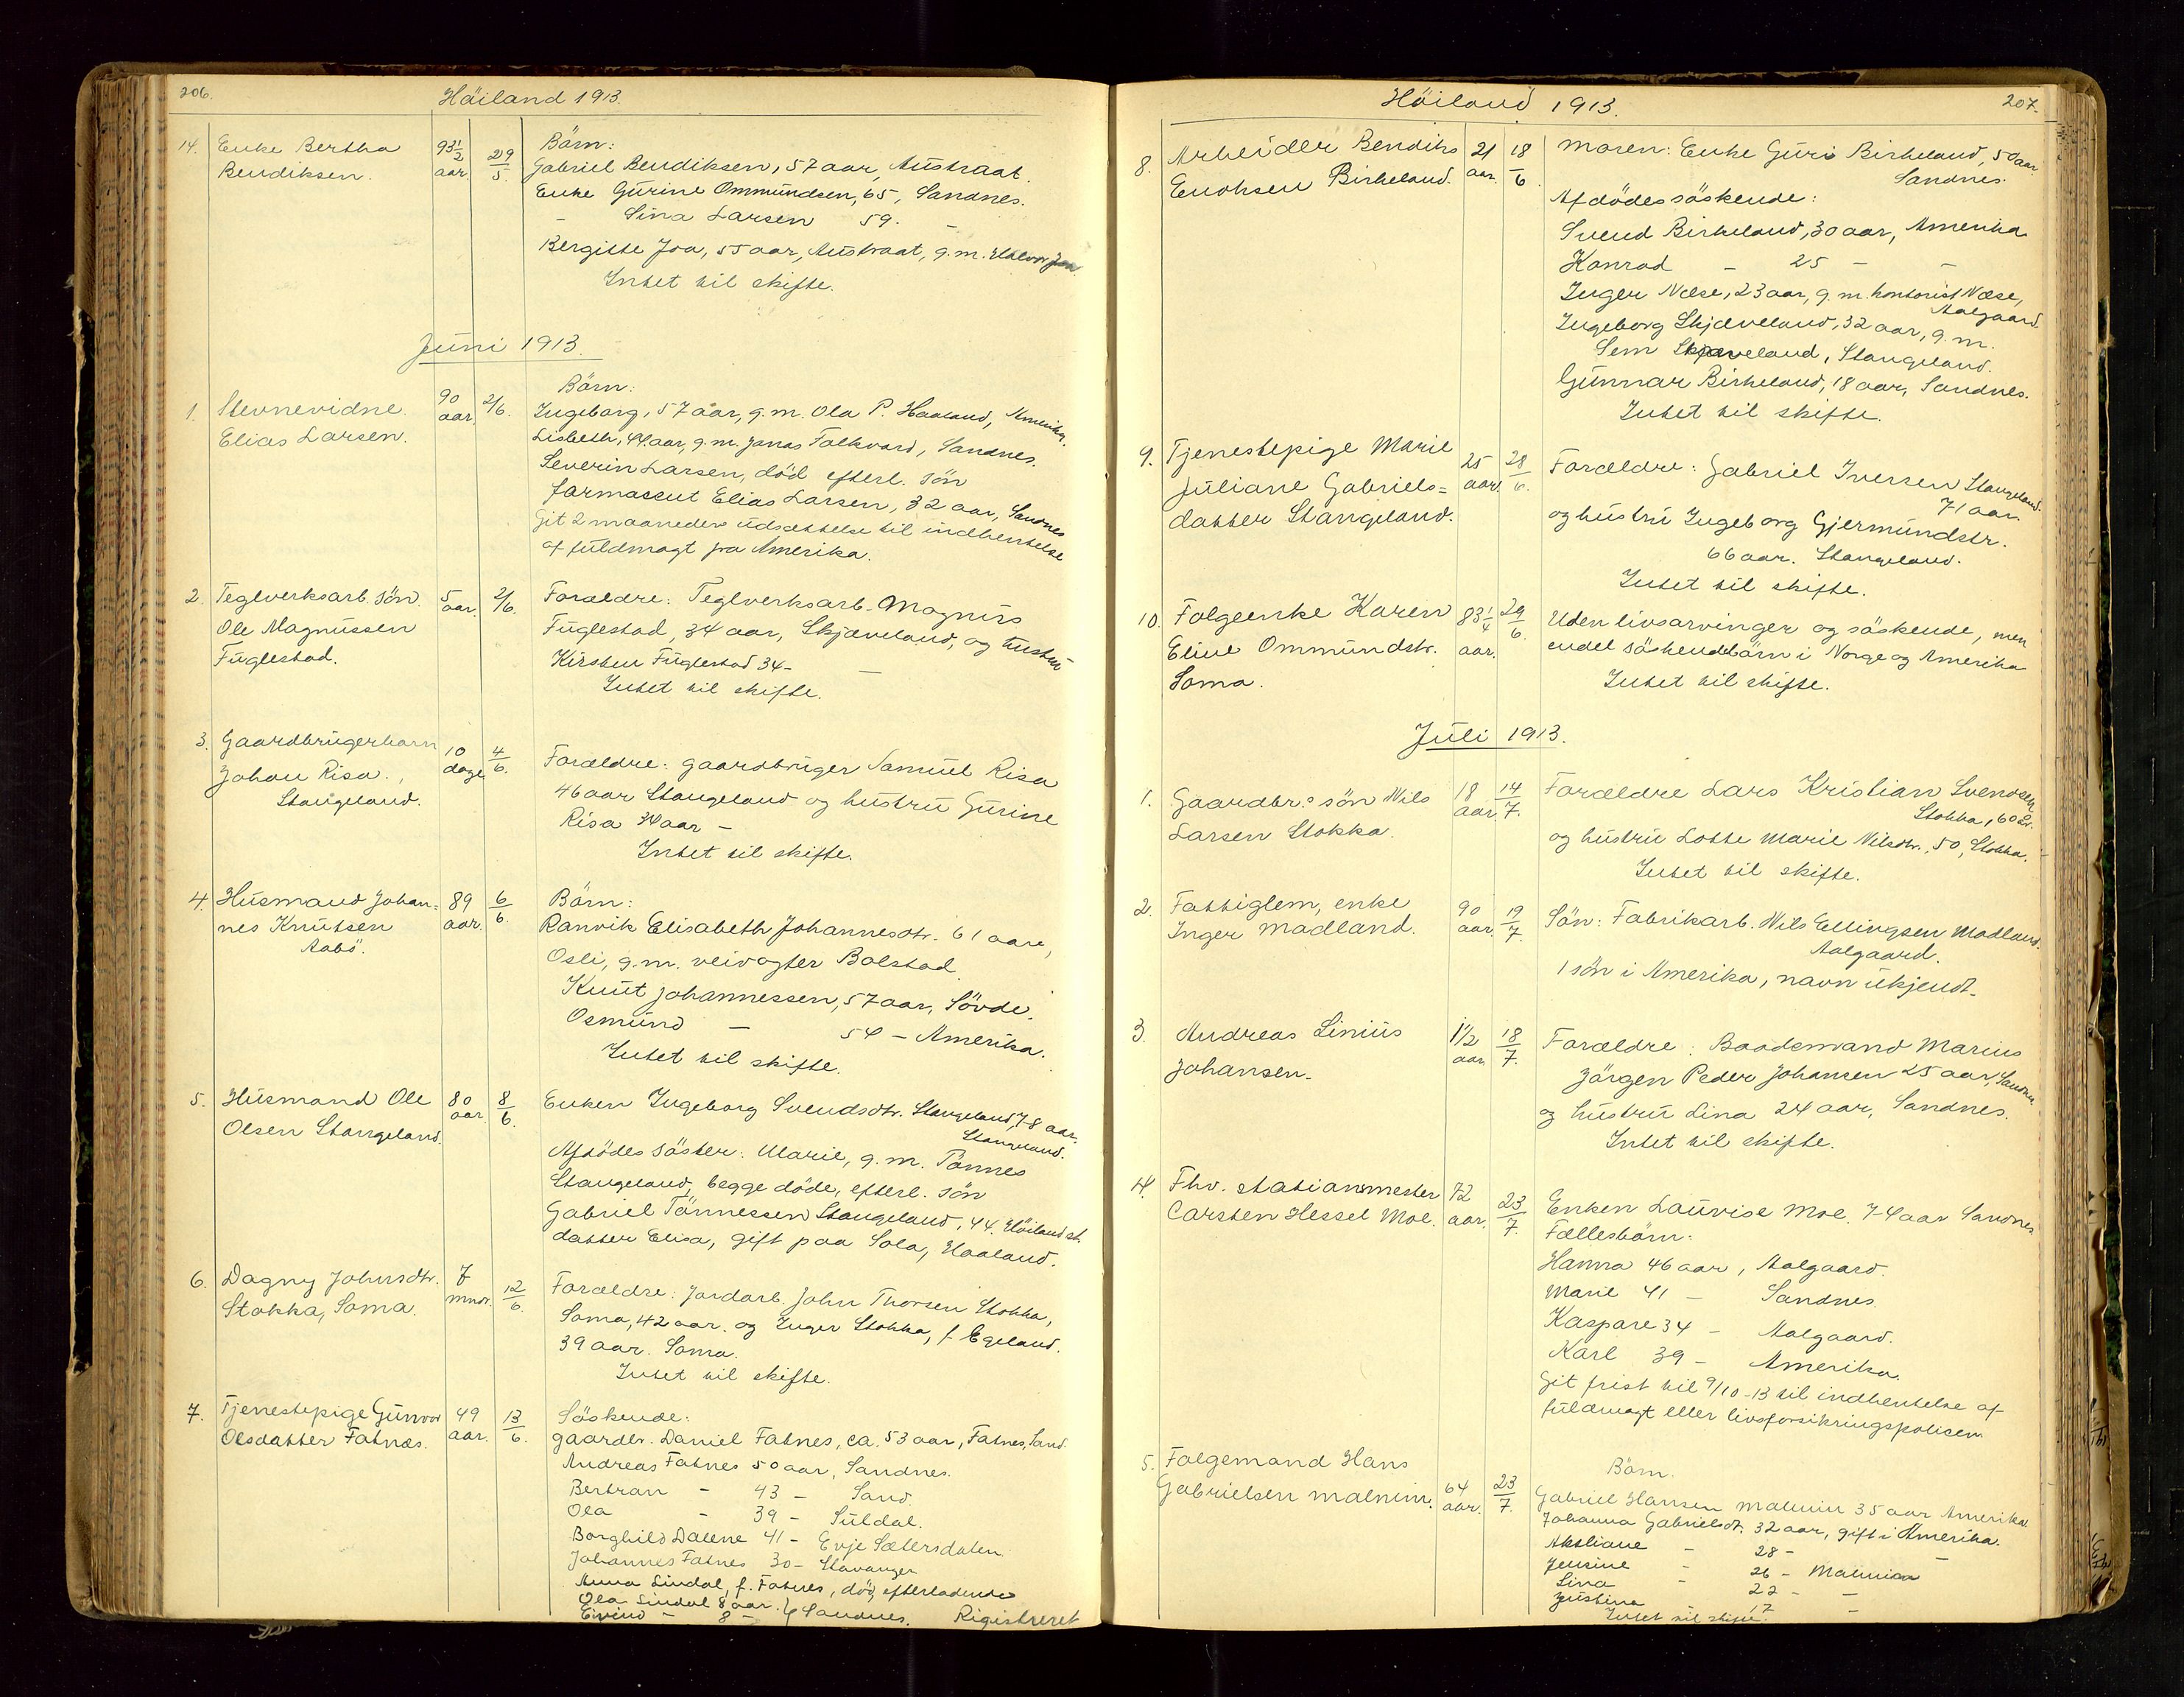 206.
Höiland 1913.
14. Enke Bertha Bendiksen.
93 1/2 aar.
29/5.
Börn:
Gabriel Bendiksen, 57 aar, Austraat.
Enke Gurine Ommundsen, 65, Sandnes.
- Sina Larsen 59. -
Bergitte Joa, 55 aar, Austraat, g.m. Halvor Joa.
Intet til skifte.
Juni 1913.
1. Stevnevidne Elias Larsen.
90 aar.
2/6.
Börn:
Ingeborg, 57 aar, g.m. Ola P. Haaland, Amerika.
Lisbeth, 44 aar, g.m. Jonas Folkvord, Sandnes.
Severin Larsen, död efterl. sön
farmaceut Elias Larsen, 32 aar, Sandnes
Git 2 maaneders udsættelse til indhentelse
af fuldmagt fra Amerika.
2. Teglverksarb. sön
Ole Magnussen
Fuglestad.
5 aar.
2/6.
Forældre: Teglverksarb. Magnus
Fuglestad, 34 aar, Skjæveland, og hustru
Kirsten Fuglestad 34 - -
Intet til skifte.
3. Gaardbrugerbarn
Johan Risa.,
Stangeland.
10 dage
4/6.
Forældre: gaardbruger Samuel Risa
46 aar Stangeland og hustru Gurine
Risa 30 aar -
Intet til skifte.
4. Husmand Johan=
nes Knutsen
Aabö.
89 aar.
6/6.
Börn:
Ranvik Elisabeth Johannesdtr. 61 aar,
Osli, g.m. veivogter Bolstad.
Knut Johannessen, 57 aar, Sövde.
Osmund - 54 - Amerika.
Intet til skifte.
5. Husmand Ole
Olsen Stangeland.
80 aar
8/6.
Enken Ingeborg Svendsdtr. Stangeland, 78 aar.
Stangeland.
Afdödes söster: Marie, g.m. Tönnes
Stangeland, begge döde, efterl. sön
Gabriel Tönnessen Stangeland, 44. Höiland st.
datter Elisa, gift paa Sola, Haaland.
6. Dagny Johnsdtr.
Stokka, Soma.
7 mndr.
12/6.
Forældre: Jordarb. John Thorsen Stokka,
Soma, 42 aar. og Inger Stokka, f. Egeland.
39 aar. Soma.
Intet til skifte.
7. Tjenestepige Gunvor
Olsdatter Fatnes.
49 aar.
13/6.
Söskende:
gaardbr. Daniel Fatnes, ca. 53 aar, Fatnes, Sand.
Andreas Fatnes 50 aar, Sandnes.
Bertran - 43 - Sand.
Ola - 39 - Suldal.
Borghild Dalene 41 - Evje Sætersdalen.
Johannes Fatnes 30 - Stavanger
Anna Lindal, f. Fatnes, död, efterladende
Ola Lindal 8 aar.
Eivind - 8 - } Sandnes. Rigistreret
Höiland 1913.
207.
8. Arbeider Bendiks
Enoksen Birkeland.
21 aar.
18/6.
Moren: Enke Guri Birkeland, 50 aar.
Sandnes.
Afdödes söskende:
Svend Birkeland, 30 aar, Amerika
Konrad - 25 - -
Inger Næse, 23 aar, g.m. kontorist Næse,
Aalgaard.
Ingeborg Skjæveland, 32 aar, g.m.
Sem Skjæveland, Stangeland.
Gunnar Birkeland, 18 aar, Sandnes.
Intet til skifte.
9. Tjenestepige Marie
Juliane Gabriels=
datter Stangeland.
25 aar.
28/6.
Forældre: Gabriel Iversen Stangeland.
71 aar.
og hustru Ingeborg Gjermundstr.
66 aar. Stangeland.
Intet til skifte.
10. Folgeenke Karen
Eline Ommundstr.
Soma.
83 1/4 aar.
29/6.
Uden livsarvinger og söskende, men
endel söskendebörn i Norge og Amerika
Intet til skifte.
Juli 1913.
1. Gaardbr.s sön Nils
Larsen Stokka.
18 aar.
14/7.
Forældre Lars Kristian Svendsen
Stokka, 60 år.
og hustru Lotte Marie Nilsdtr., 50, Stokka.
Intet til skifte.
2. Fattiglem, enke
Inger Madland.
90 aar.
19/7.
Sön: Fabrikarb. Nils Ellingsen Madland.
Aalgaard.
1 sön i Amerika, navn ukjendt.
3. Andreas Linius
Johansen.
1 1/2 aar
18/7.
Forældre: Baadsmand Marius
Jörgen Peder Johansen 25 aar, Sandnes
og hustru Lina 24 aar, Sandnes.
Intet til skifte.
4. Fhv. stationsmester
Carsten Hessel Moe.
72 aar.
23/7.
Enken Laurise Moe. 74 aar Sandnes
Fællesbörn:
Hanna 46 aar, Aalgaard.
Marie 41 - Sandnes.
Kaspare 34 - Aalgaard.
Karl 39 - Amerika.
Git frist til 9/10-13 til indhentelse af
fuldmagt eller livsforsikringspolisen
5. Folgemand Hans
Gabrielsen Malmin.
64 aar.
23/7.
Börn.
Gabriel Hansen Malmin 35 aar Amerika
Johanna Gabrielsdt. 32 aar, gift i Amerika.
Aksliane - 28 - -
Jensine - 26 - Malmin
Lina - 22 - -
Justina 17 -
Intet til skifte.